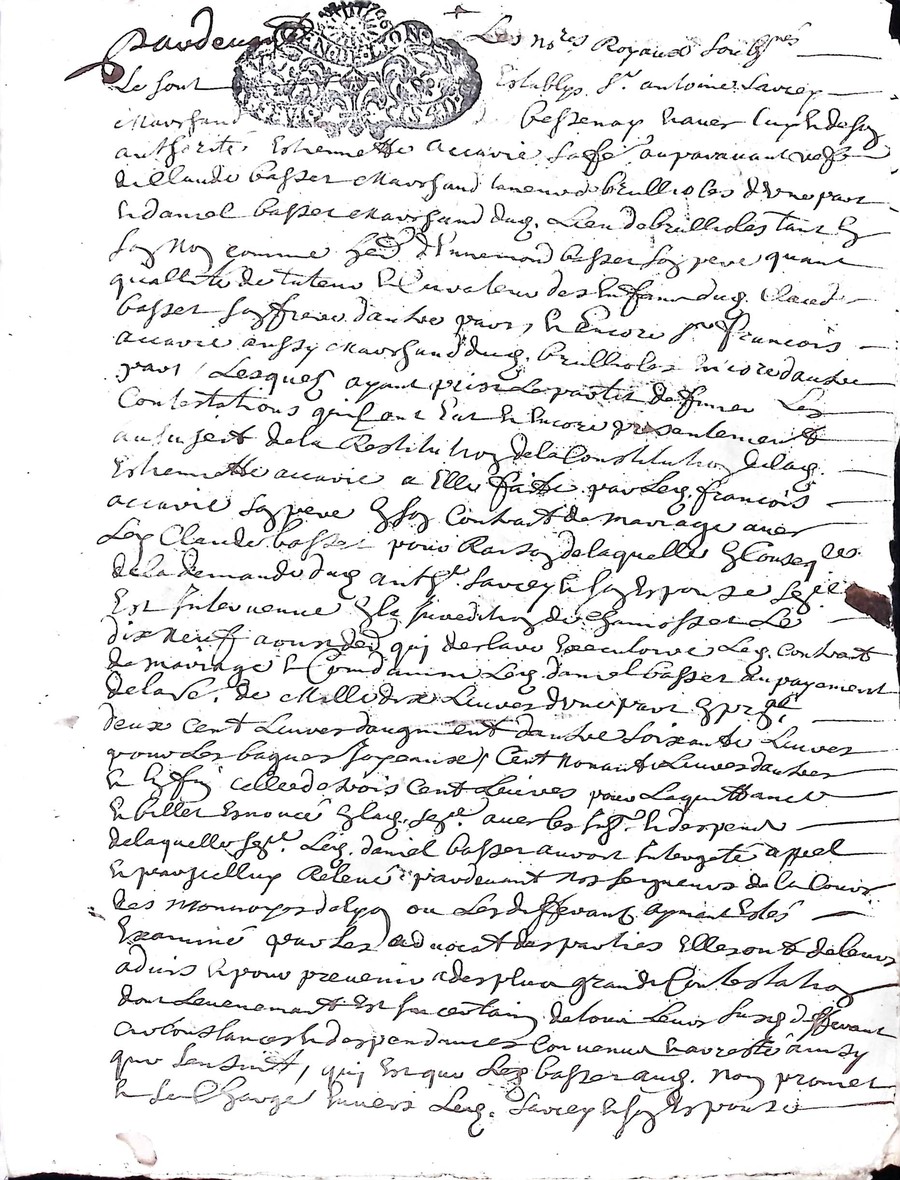 Pardevant Les nores Royaux soubsnés
Le sont Establys Sr. antoine Savey
Marchand bessenay Et avec luy Et de sa
authorité Estiennette accarie sa fe. auparavant vefve
de Claude basset Marchand brullioles d'une part
Et daniel basset Marchand dud. Lieu de brullioles tant En
son Nom comme herd. d'Annemond basset son pere quant
quallité de tuteur Et Curateur des Enfans dud. Claude
basset son frere d'autre part, Et Encore Sr francois
accarie aussy Marchand dud. brullioles Encore dautre
part, Lesquels ayant prist Le partit de finir Les
Contestations quils ont Eut Et Encore presentement
au sujest de la Restitution de la Constitution de lad.
Estiennette accarie a Elle faitte par Led. francois
accarie son pere En son Contract de mariage avec
Led. Claude basset pour Raison de laquelle En Conseqces
de la demande dud. anthe Savey Et son Espouze sece
Est Intervenue En la Juredition de Chamosset Le
dix Neuf aoust der. qui declare Executoire Led. contract
de mariage Et Condamne Led. daniel basset au payement
de la Se. de Mille dix Livres d'une part En pral
deux cent Livres daugment dautre soixante Livres
pour Les bagues Joyeaux, Cent Nonante Livres dautres
Et Enfin celle de trois Cent Livres pour La quittance
Et billet Enoncé En lad. sece. avec les Inst. Et despens
de laquelle sece. Led. daniel basset auroit Interjeté appel
Et par Icelluy Relevé pardevant Nosseigneurs de la Cour
des Monnoyes de Lyon ou Les differants ayant Estés
Examiné par Les advocat des parties Elles ont de leurs
advis Et pour prevenir a des plus grande Contestation
dont Levenement Est Incertain de tout Leurs susd. differant
circonstances Et despendances Convenu Et aresté ainsy
que sensuit, qui Est que Led. basset aud. Nom promet
Et se Charge Envers Led. Savey Et son Espouze